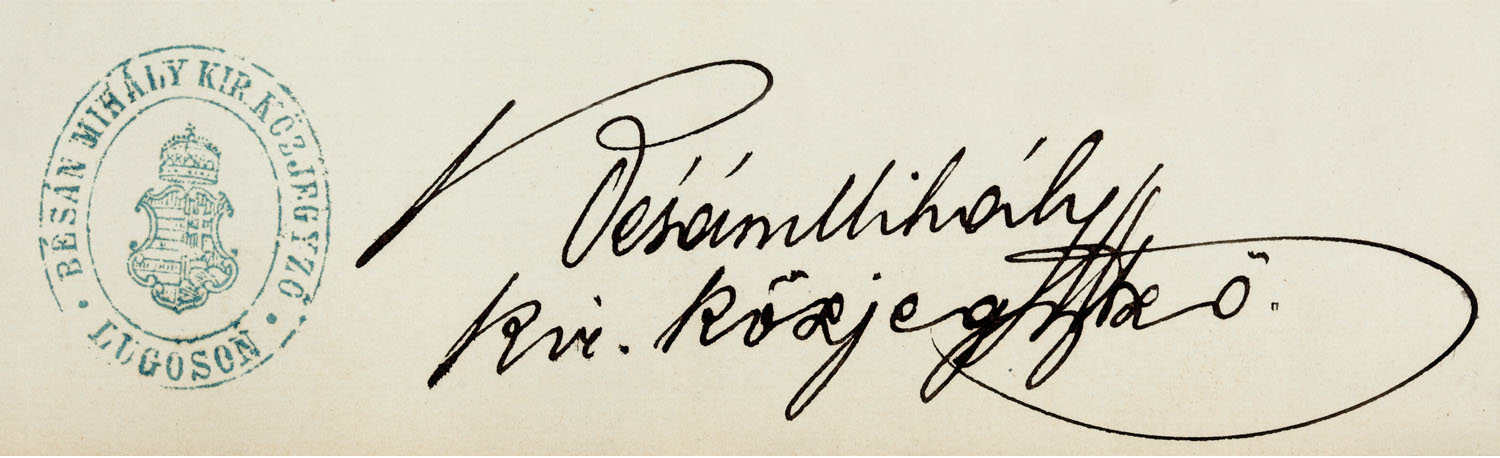 BÉSÁN MIHÁLY KIR. KÖZJEGYZŐ
· LUGOSON ·
Bésán Mihály
kir. közjegyző.